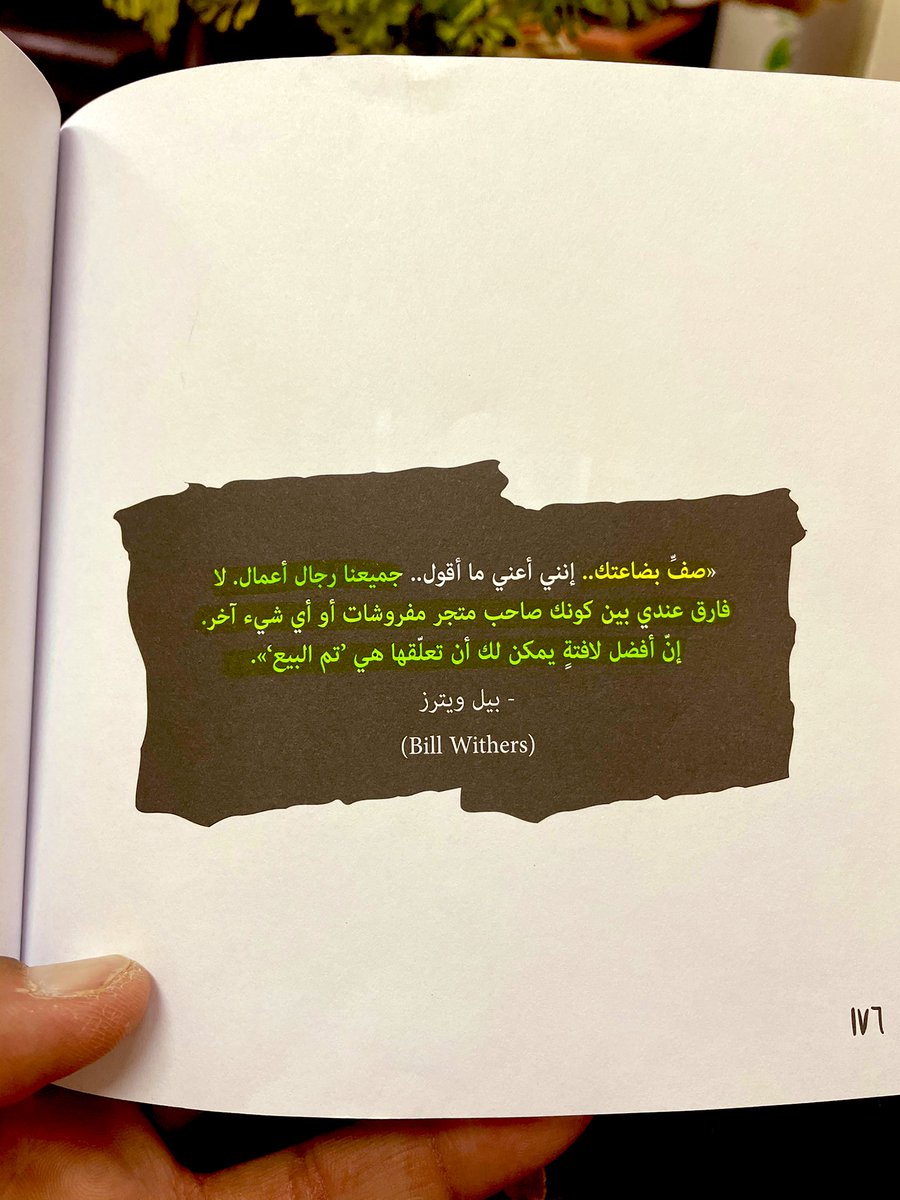 «صفِّ بضاعتك.. إنني أعني ما أقول.. جميعنا رجال أعمال. لا
فارق عندي بين كونك صاحب متجر مفروشات أو أي شيء آخر.
إنّ أفضل لافتةٍ يمكن لك أن تعلّقها هي ’تم البيع‘».
- بيل ويترز
(Bill Withers)
١٧٦